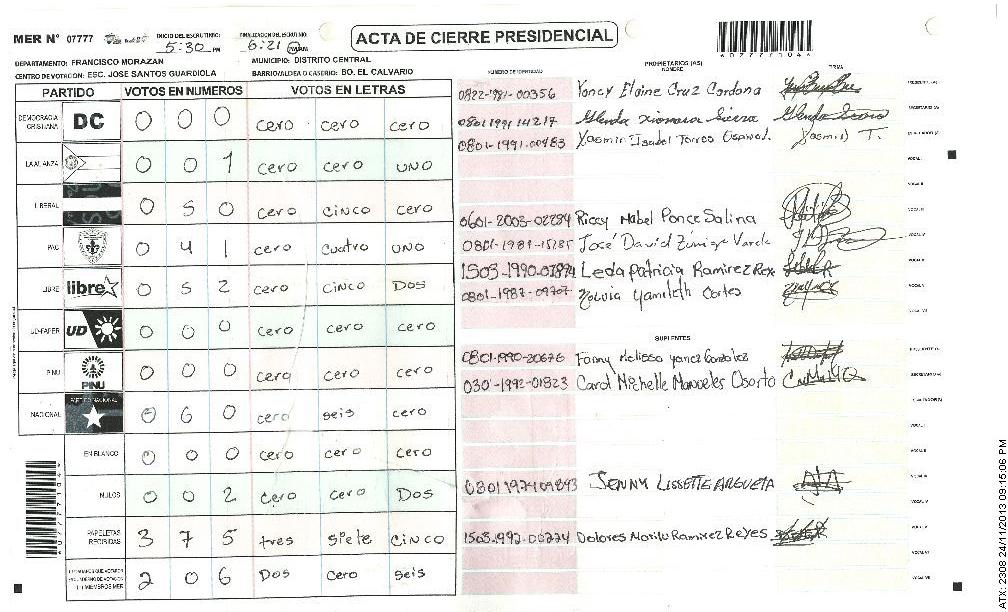 MER N° 07777
INICIO DEL ESCRUTINIO: 5:30 PM
FINALIZACION DEL ESCRUTINIO: 6:21
ACTA DE CIERRE PRESIDENCIAL
DEPARTAMENTO: FRANCISCO MORAZAN
MUNICIPIO: DISTRITO CENTRAL
CENTRO DE VOTACION: ESC. JOSE SANTOS GUARDIOLA
BARRIO/ALDEA O CASERIO: BO. EL CALVARIO
PARTIDO VOTOS EN NUMEROS VOTOS EN LETRAS
DEMOCRACIA CRISTIANA DC 0 0 0 cero cero cero
LA ALIANZA 0 0 1 cero cero UNO
LIBERAL 0 5 0 cero cinco cero
PAC 0 4 1 cero cuatro UNO
LIBRE libre 0 5 2 cero cinco Dos
UD-FAPER UD 0 0 0 cero cero cero
PINU PINU 0 0 0 cero cero cero
NACIONAL PARTIDO NACIONAL 0 6 0 cero seis cero
EN BLANCO 0 0 0 cero cero cero
NULOS 0 0 2 cero cero Dos
PAPELETAS RECIBIDAS 3 7 5 tres siete cinco
2 0 6 Dos cero seis
NUMERO DE IDENTIDAD PROPIETARIOS (AS) NOMBRE FIRMA
0822-1981-00356 Yoncy Elaine Cruz Cardona
0801 1991 14217 Glenda Xiomara Sierra
0801-1991-00483 Yasmin Isabel Torres Yasmin T.
0601-2003-02284 Riccy Mabel Ponce Salina
0801-1981-15285 José David Zúniga Varela
1503-1990-01874 Leda Patricia Ramirez Rey
0801-1987-09707 Yamileth Cortes
SUPLENTES
0801-1990-20676 Fanny Melissa Yanez Gonzalez
0301-1992-01823 Carol Michelle Manueles Osorto
0801 1974 09893 JENNY LISSETTE ARGUETA
1503-1992-00274 Dolores Marilu Ramirez Reyes
*07777104*
ATX: 2308 24/11/2013 09:15:06 PM